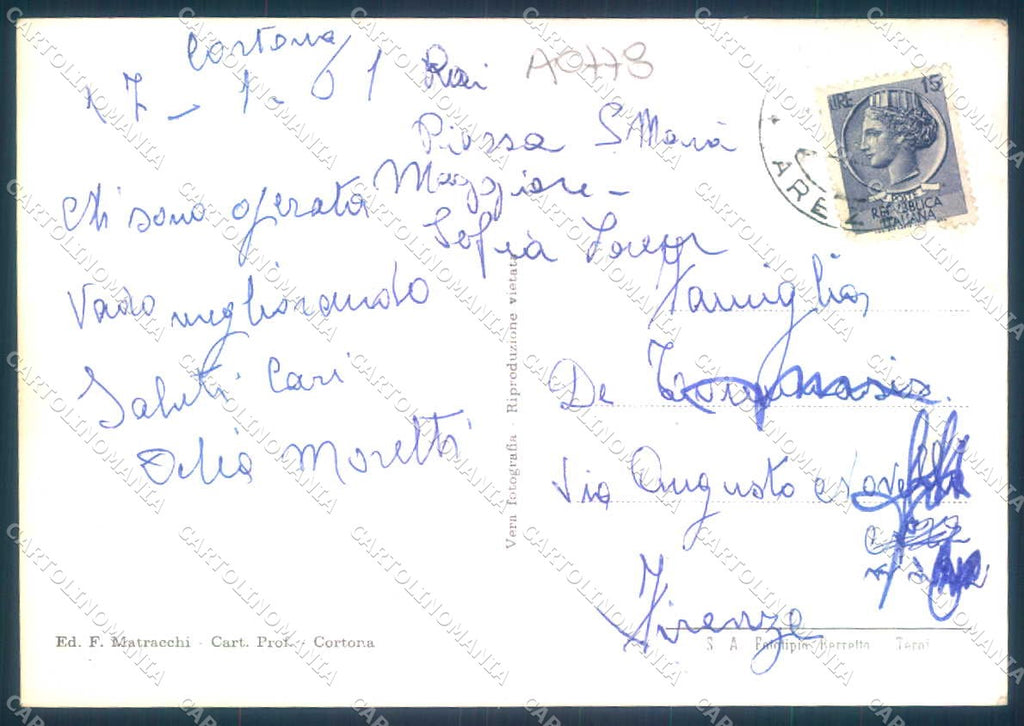 Cortona
17 - 1 - 61
Piazza S Maria
Maggiore -
Mi sono operata
Vado migliorando
Saluti Cari
Delia Moretti
A0778
LIRE 15
REPUBBLICA
ITALIANA
AREZ
Famiglia
De
Via Augusto
Firenze
Vera fotografia - Riproduzione vietata
Ed. F. Matracchi - Cart. Prof. - Cortona
S. A. Fototipia Berretta - Terni
CARTOLINOMANIA